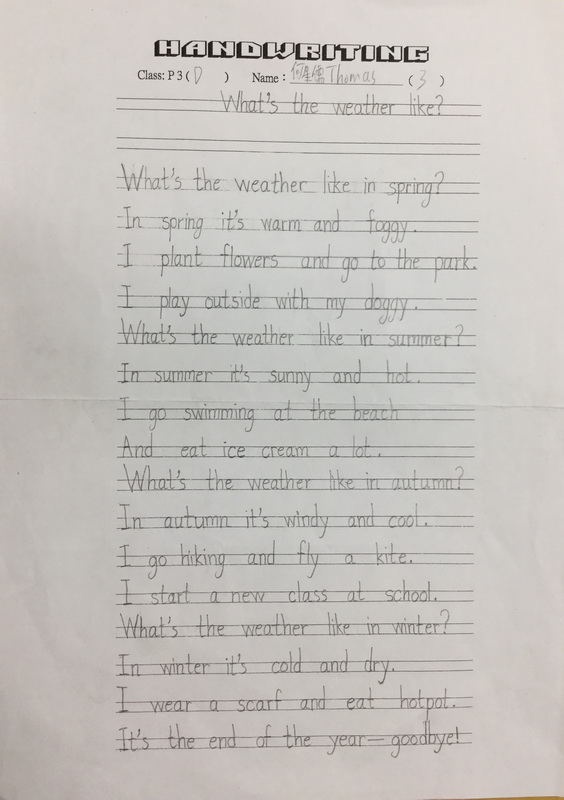 HANDWRITING
Class: P 3 ( D ) Name : Thomas ( 3 )
What's the weather like?
What's the weather like in spring?
In spring it's warm and foggy.
I plant flowers and go to the park.
I play outside with my doggy.
What's the weather like in summer?
In summer it's sunny and hot.
I go swimming at the beach
And eat ice cream a lot.
What's the weather like in autumn?
In autumn it's windy and cool.
I go hiking and fly a kite.
I start a new class at school.
What's the weather like in winter?
In winter it's cold and dry.
I wear a scarf and eat hotpot.
It's the end of the year— goodbye!